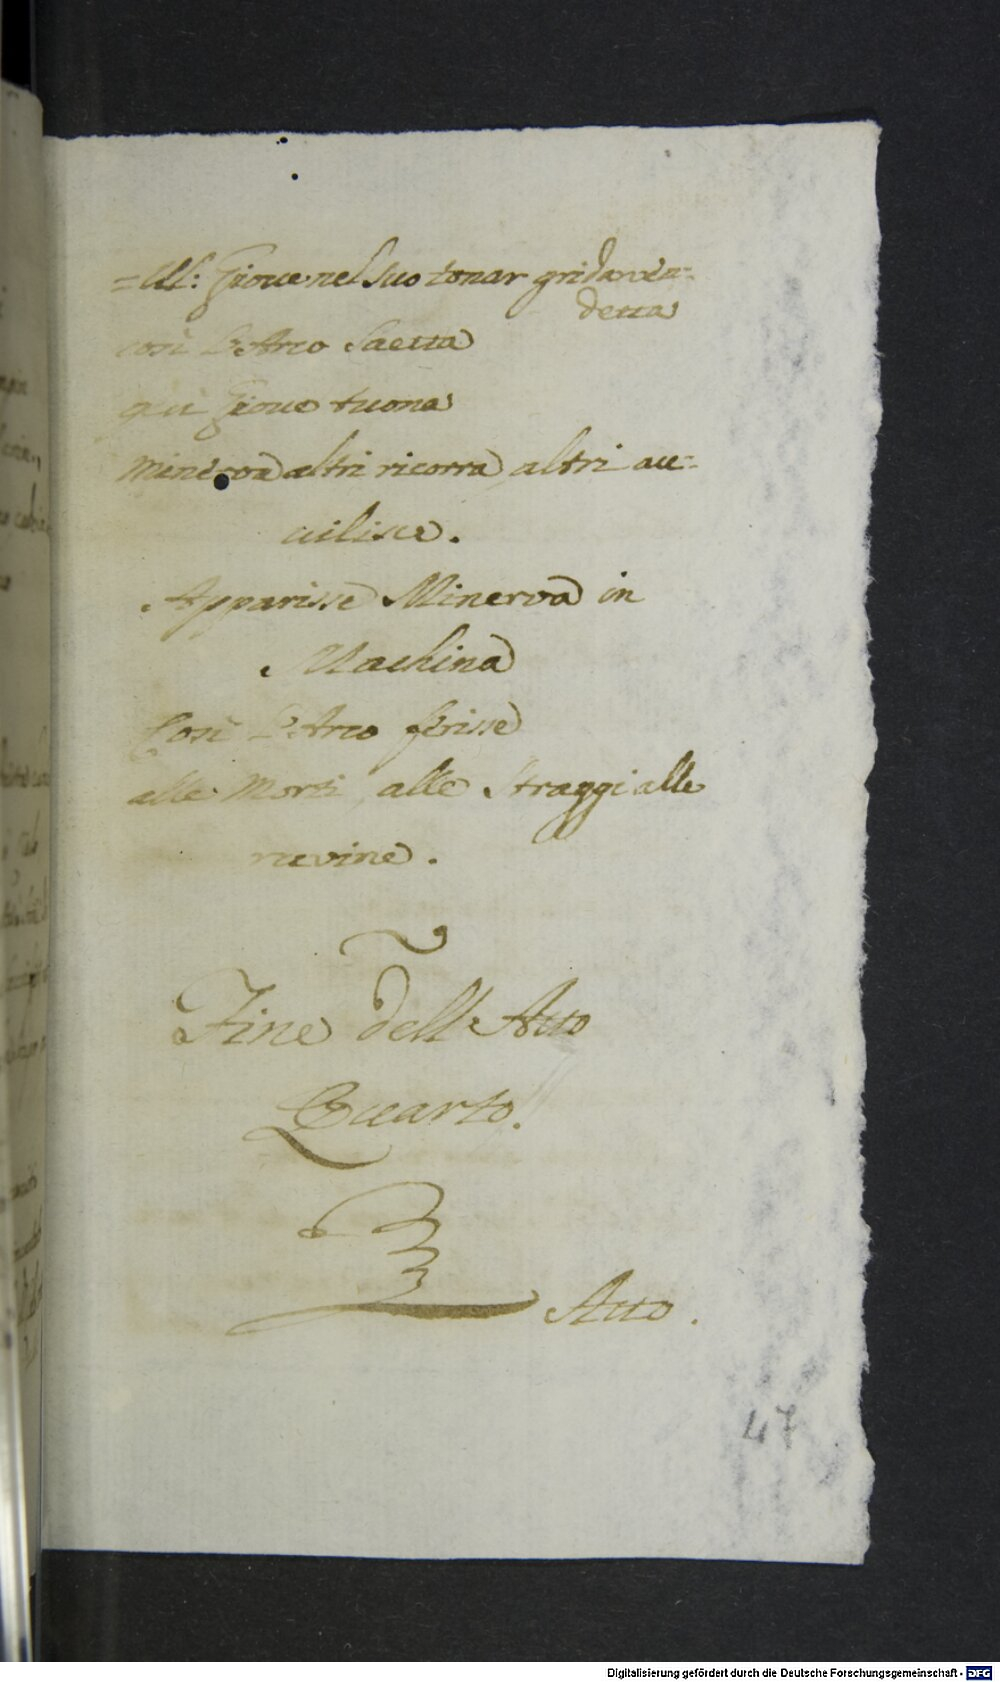 =Ul: Giove nel suo tonar gridar ven=
detta
così l'Arco Saetta
qui Giove tuona
Minerva altri ricorra, altri au=
uilisce.
Apparisse Minerva in
Machina
Così l'Arco ferisse
alle Morti, alle Straggi alle
ruvine.
Fine dell'Atto
Quarto.
Atto.
47
Digitalisierung gefördert durch die Deutsche Forschungsgemeinschaft - DFG